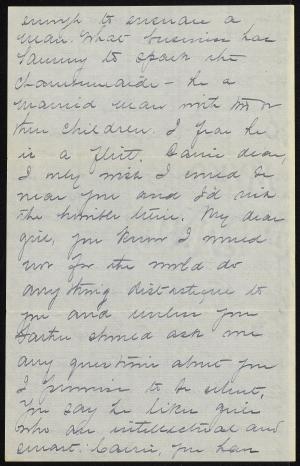 enough to ensnare a
man. What business has
Sammy to spark the
Chambermaids - he a
married man with two or
three children. I fear he
is a flirt. Carrie dear,
I only wish I could be
near you and I'd risk
the humble
My dear
girl, you know I would
not for the world do
anything distasteful to
you and unless you
should ask me
any questions about you
I promise to be silent.
You say he likes girls
who are intellectual and
smart. Carrie, you have